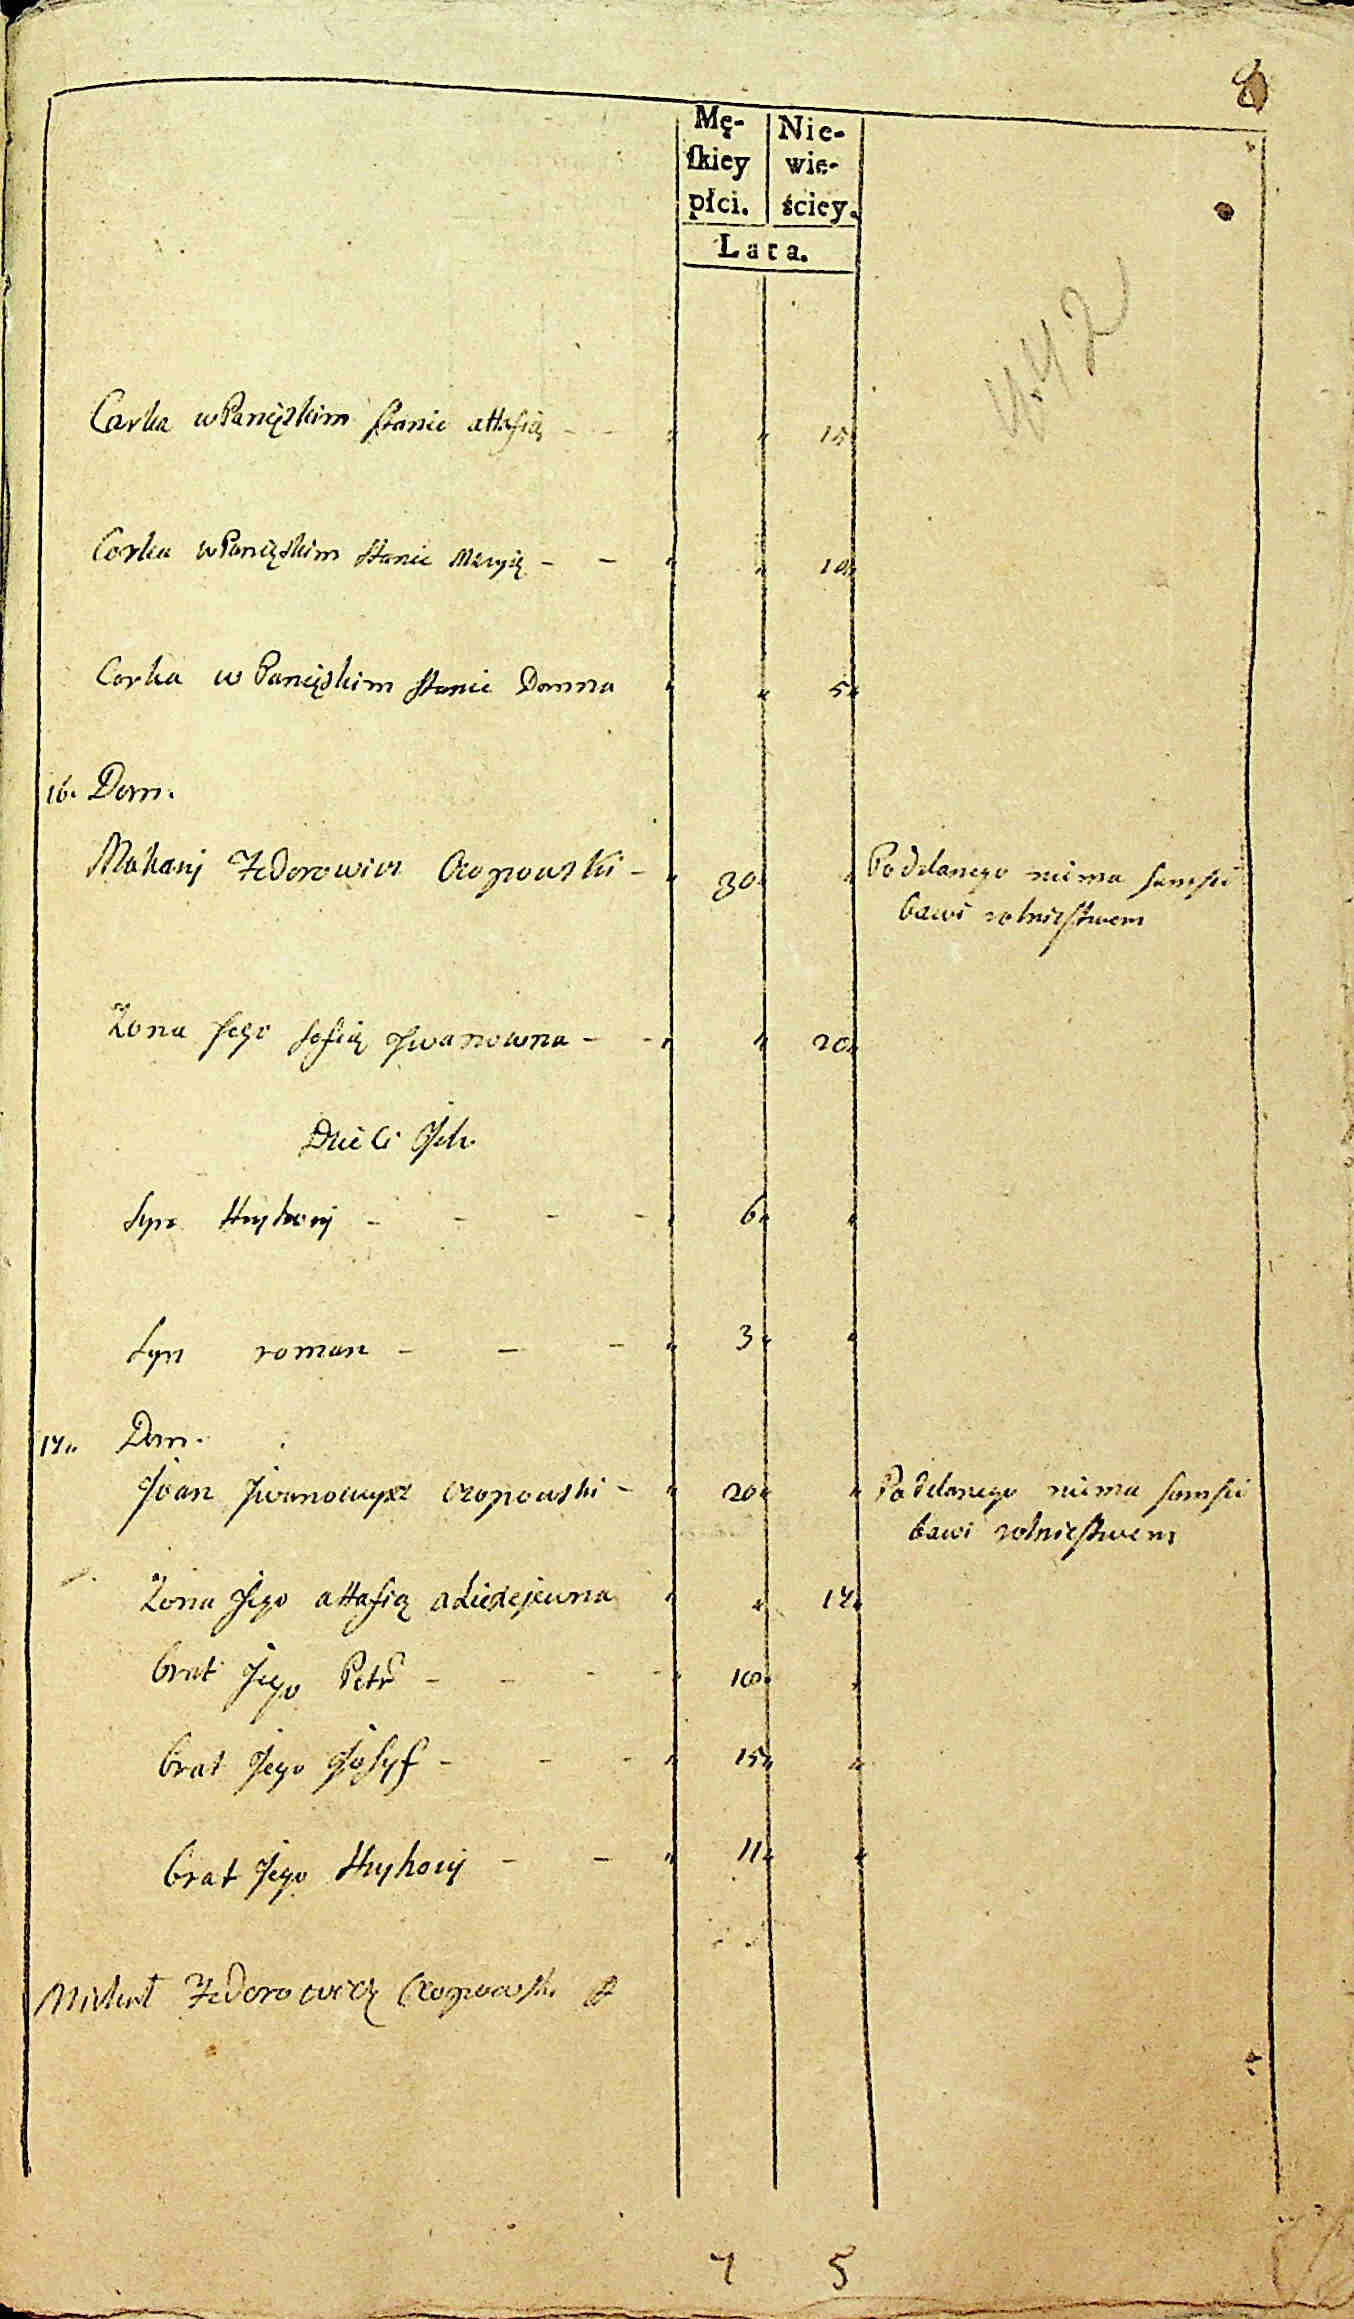 8
Mę-
skiey
płci.
Nie-
wie-
ściey.
Lata.
442
Corka w Panięskim stanie attafią - - " " 15"
Corka w Panięskim stanie Maryią - - " " 10"
Corka w Panięskim stanie Domna " " 5"
16. Dom.
Makarij Fedorowicz Czopowski - " 30" " Poddanego nima samsie
bawi rolnicstwem
Żona Jego sofią Jwanowna - - " " 20"
Dzieci Jch
Syn Hryhorij - - - - " 6" "
Syn roman - - - " 3" "
17" Dom.
Joan Jwanowycz Czopowski - " 20" " Poddanego nima samsie
bawi rolnicstwem
Żona Jego attafią awdejewna " " 17"
brat Jego Petr - - - - " 18" "
brat Jego Josyf - - - " 15" "
brat Jego Hryhorij - - " 11" "
Michał Fedorowicz Czopowski
7 5